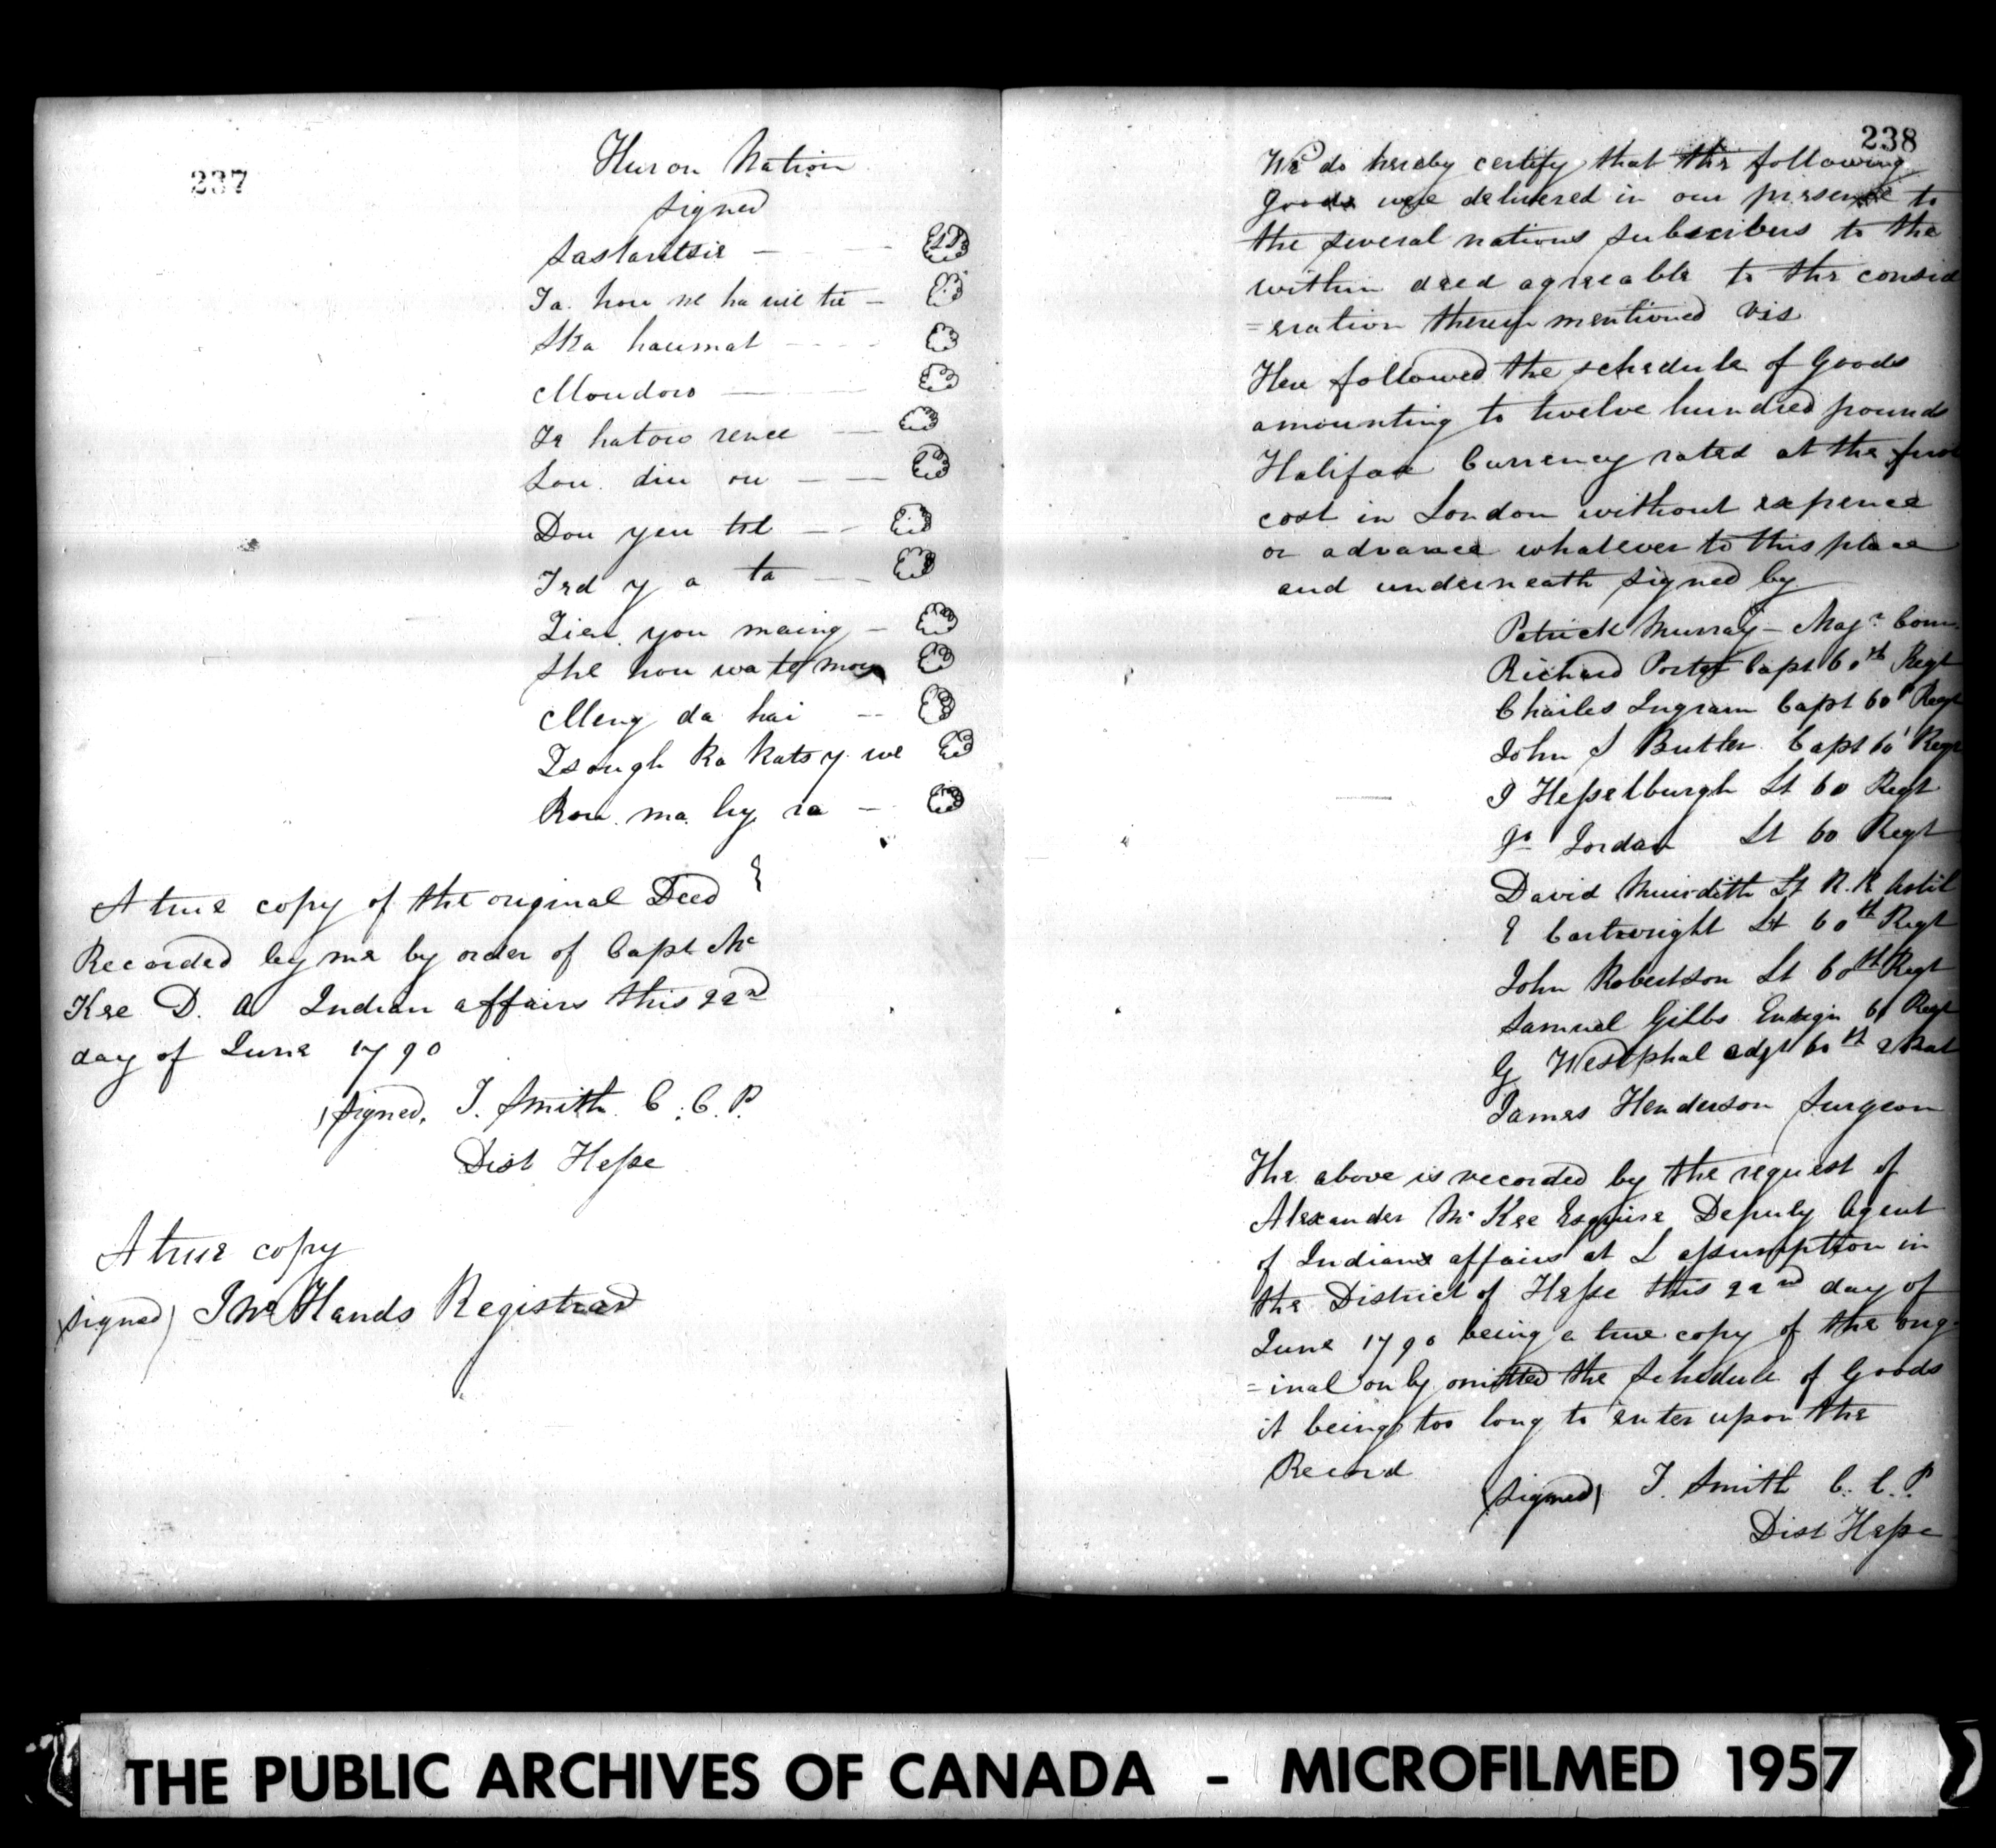 237
Huron Nation
signed
Sastaritsie
Ta hou ne ha wie tie
Ska houmat
Moudoro
Te hatow rence
Sou diu ou
Dou yen tet
Ted y a ta
Tien you maing
She hou wa te mou
Meng da hai
Tsough ka kats y we
Rou ma hy ra
A true copy of the original Deed
Recorded by me by order of Capt Mc
Kee D. A Indian affairs this 22nd
day of June 1790
(signed, T. Smith C. C. P.
Dist Hesse
A true copy
(signed) Hands Registrar
238
We do hereby certify that the following
goods were delivered in our presence to
the several nations subscribers to the
within deed agreeable to the consid
=eration therein mentioned vis
Here followed the schedule of goods
amounting to twelve hundred pounds
Halifax Currency rated at the first
cost in London without expence
or advance whatever to this place
and underneath signed by
Patrick Murray - Majr Com
Richard Porter Capt 60th Regt
Charles Ingram Capt 60 Regt
John J Butler Capt 60 Regt
J Hesselburgh Lt 60 Regt
Jordan Lt 60 Regt
David Meredith Lt R. R Artil
E Cartwright Lt 60th Regt
John Robertson Lt 60th Regt
Samuel Gibbs Ensign 60 Regt
G Westphal adjt 60th 2 Bat
James Henderson Surgeon
The above is recorded by the request of
Alexander Mc Kee Esquire Deputy Agent
of Indians affairs at L assumption in
the District of Hesse this 22nd day of
June 1790 being a true copy of the orig
=inal only omitted the Schedule of Goods
it being too long to enter upon the
Record
(signed) T. Smith C. C. P.
Dist Hesse
THE PUBLIC ARCHIVES OF CANADA - MICROFILMED 1957